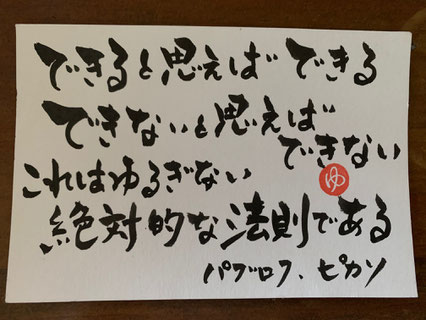 できると思えばできる
できないと思えば
できない
これはゆるぎない
ゆ
絶対的な法則である
パブロフ、ピカソ